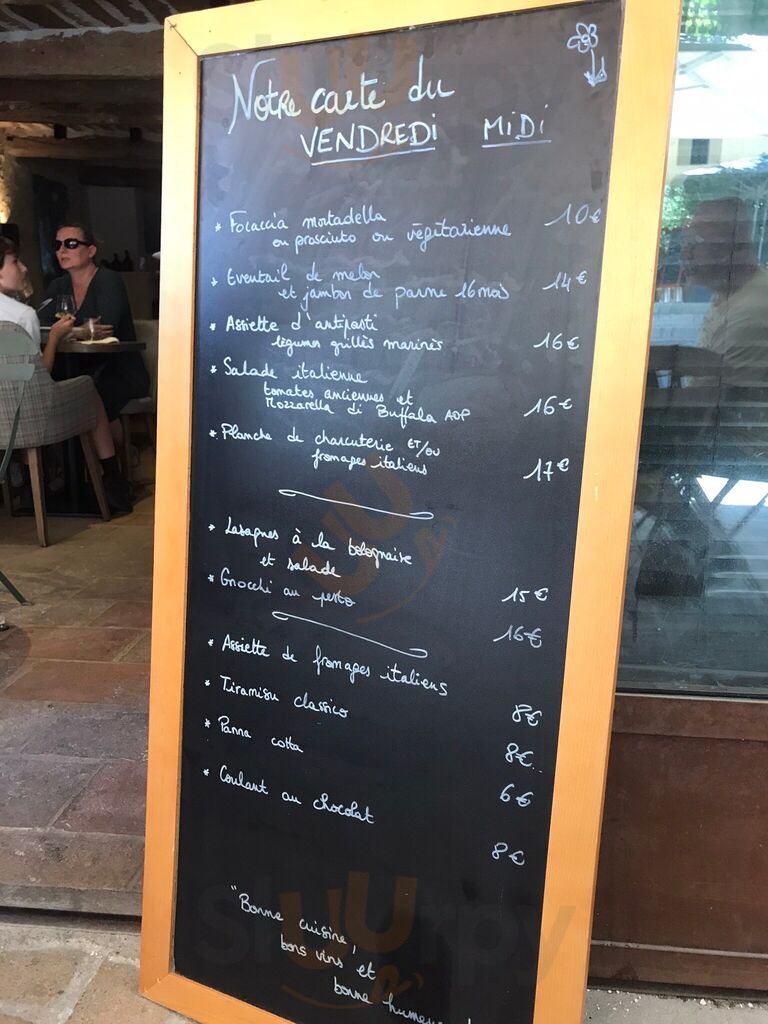 Notre carte du
VENDREDi MiDi
* Focaccia mortadella
ou prosciuto ou végétarienne 10€
* Eventail de melon
et jambon de parme 16 mois 14€
* Assiette d'antipasti
légumes grillés marinés 16€
* Salade italienne
tomates anciennes et
Mozzarella di Buffala AOP 16€
* Planche de charcuterie ET/OU
fromages italiens 17€
* Lasagnes à la bolognaise
et salade 15€
* Gnocchi au pesto 16€
* Assiette de fromages italiens 8€
* Tiramisu classico 8€
* Panna cotta 6€
* Coulant au chocolat 8€
"Bonne cuisine,
bons vins et
bonne humeu
Sluurpy